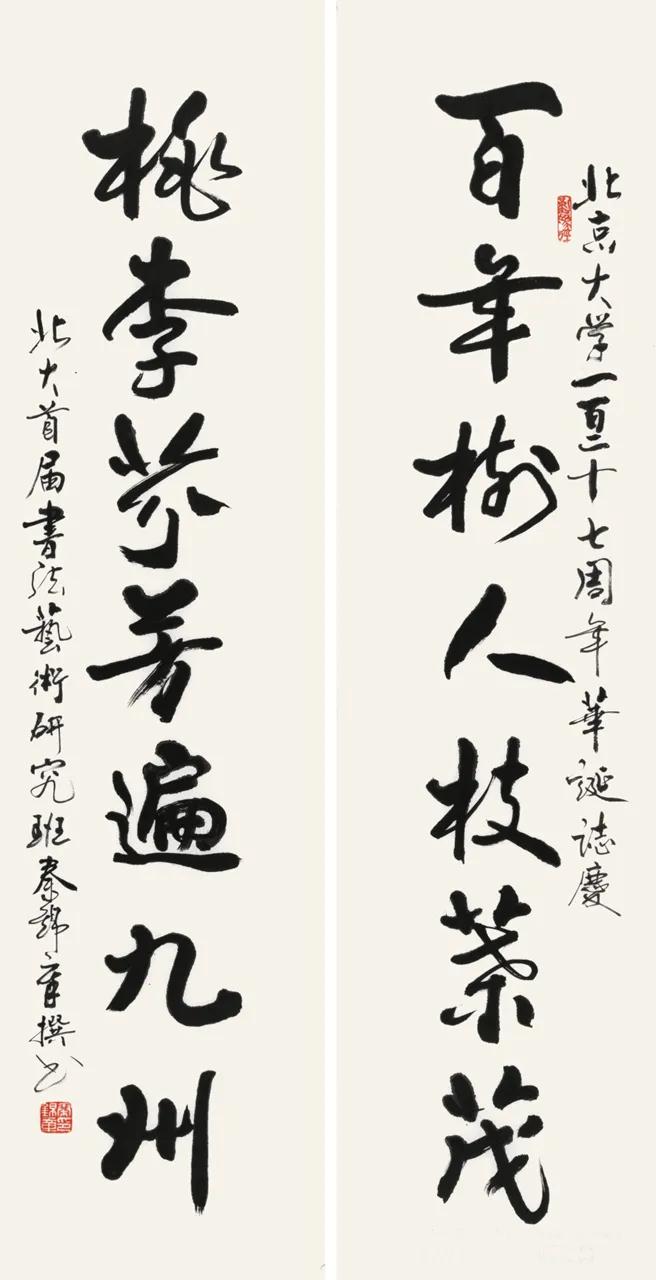 北京大学一百二十七周年華誕誌慶
百年樹人枝葉茂
桃李芬芳遍九州
北大首届書法藝術研究班秦錦章撰书